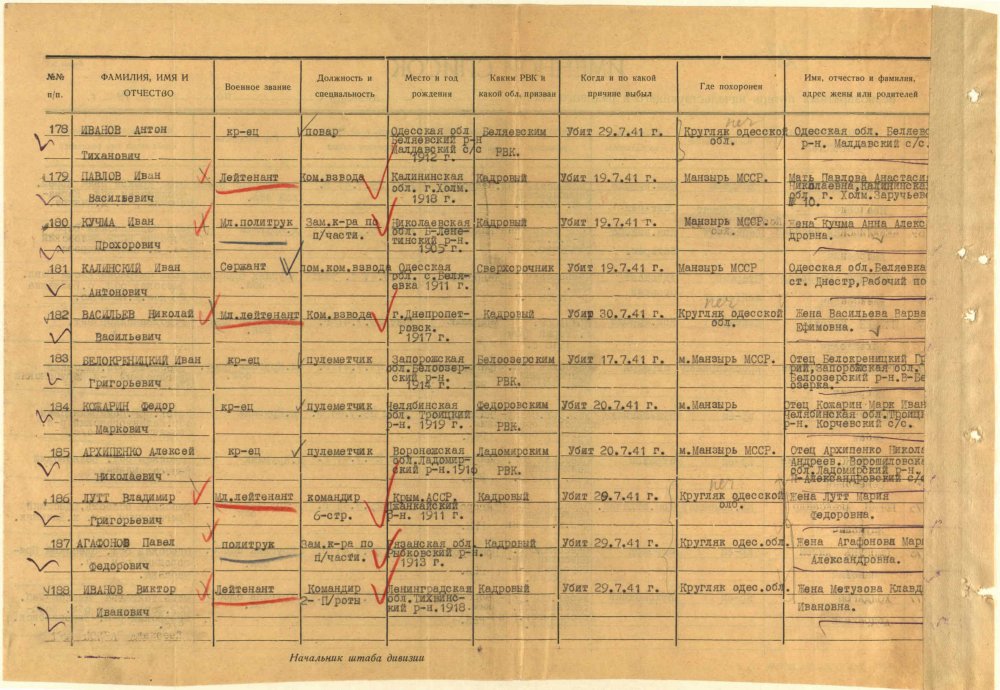 №№ п/п.
ФАМИЛИЯ, ИМЯ И ОТЧЕСТВО
Военное звание
Должность и специальность
Место и год рождения
Каким РВК и какой обл. призван
Когда и по какой причине выбыл
Где похоронен
Имя, отчество и фамилия, адрес жены или родителей
178 ИВАНОВ Антон кр-ец повар Одесская обл Беляевским Убит 29.7.41 г. Кругляк одесской Одесская обл. Беляевс
нет
Беляевский р-н обл. р-н. Малдавский с/с.
Малдавский с/с РВК.
Тиханович 1912 г.
179 ПАВЛОВ Иван Лейтенант Ком.взвода Калининская Кадровый Убит 19.7.41 г. Манзырь МССР. Мать Павлова Анастаси
обл. г.Холм. Николаевна,Калининска
Васильевич 1918 г. обл. г. Холм.Заручьев
№ 10.
180 КУЧМА Иван Мл.политрук Зам.к-ра по Николаевская Кадровый Убит 19.7.41 г. Манзырь МССР. Жена Кучма Анна Алекс
п/части. обл. Б-Лепе- дровна.
тинский р-н.
Прохорович 1905 г.
181 КАЛИНСКИЙ Иван Сержант пом.ком.взвода Одесская Сверхсрочник Убит 19.7.41 г. Манзырь МССР Одесская обл.Беляевка
обл. с.Беля- ст. Днестр,Рабочий по
Антонович евка 1911 г.
182 ВАСИЛЬЕВ Николай Мл.лейтенант Ком.взвода г.Днепропет- Кадровый Убит 30.7.41 г. Кругляк одесской Жена Васильева Варва
нет
ровск. обл. Ефимовна.
Васильевич 1917 г.
183 БЕЛОКРЕНИЦКИЙ Иван кр-ец пулеметчик Запорожская Белоозерским Убит 17.7.41 г. м.Манзырь МССР. Отец Белокреницкий Гр
обл.Белоозер- рий,Запорожская обл.
ский р-н РВК. Белоозерский р-н.В-Бе
Григорьевич 1914 г. озерка.
184 КОЖАРИН Федор кр-ец пулеметчик Челябинская Федоровским Убит 20.7.41 г. м.Манзырь Отец Кожарин Марк Иван
обл. Троицкий Челябинская обл.Троицк
Маркович р-н. 1919 г. РВК. р-н. Корчевский с/с.
185 АРХИПЕНКО Алексей кр-ец пулеметчик Воронежская Ладомирским Убит 20.7.41 г. м.Манзырь МССР. Отец Архипенко Никола
обл.Ладомир- Андреев. Ворошиловска
Николаевич ский р-н.1916 РВК. обл.Ладомирский р-н.
Александровский с/с
186 ЛУТТ Владимир Мл.лейтенант командир Крым.АССР Кадровый Убит 29.7.41 г. Кругляк одесской Жена Лутт Мария
нет
6-стр. Джанкайский обл. Федоровна.
Григорьевич р-н. 1911 г.
187 АГАФОНОВ Павел политрук Зам.к-ра по Рязанская обл. Кадровый Убит 29.7.41 г. Кругляк одес.обл. Жена Агафонова Мари
п/части. Рыбковский р-н. Александровна.
Федорович 1913 г.
188 ИВАНОВ Виктор Лейтенант Командир Ленинградская Кадровый Убит 29.7.41 г. Кругляк одес.обл. Жена Метузова Клавд
2- П/роты обл.Тихвин- Ивановна.
Иванович ский р-н.1918.
Начальник штаба дивизии